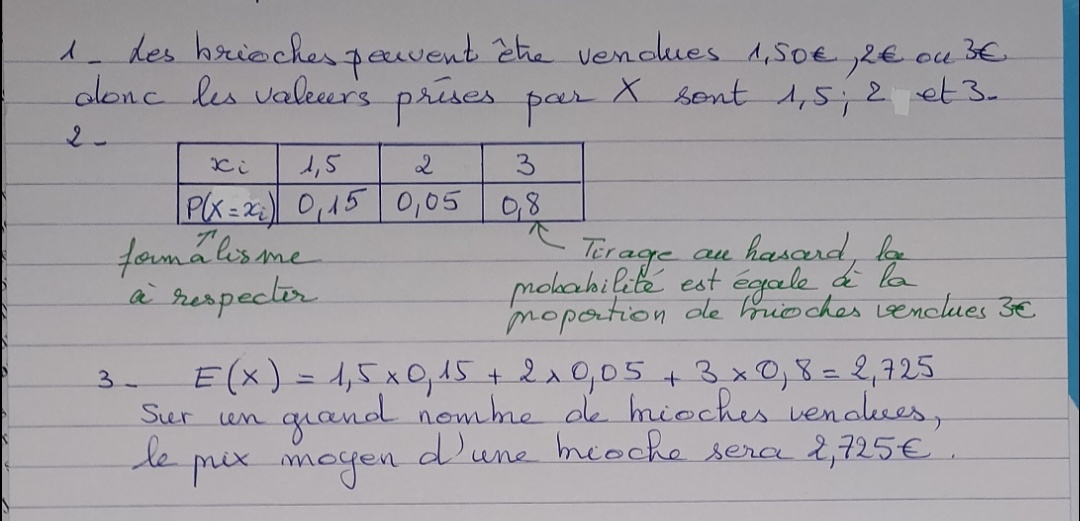 1- Les brioches peuvent être vendues 1,50€, 2€ ou 3€
donc les valeurs prises par X sont 1,5 ; 2 et 3.
2-
xi 1,5 2 3
P(X=xi) 0,15 0,05 0,8
formalisme
à respecter
Tirage au hasard, la
probabilité est égale à la
proportion de brioches vendues 3€
3- E(X) = 1,5×0,15 + 2×0,05 + 3×0,8 = 2,725
Sur un grand nombre de brioches vendues,
le prix moyen d'une brioche sera 2,725€.